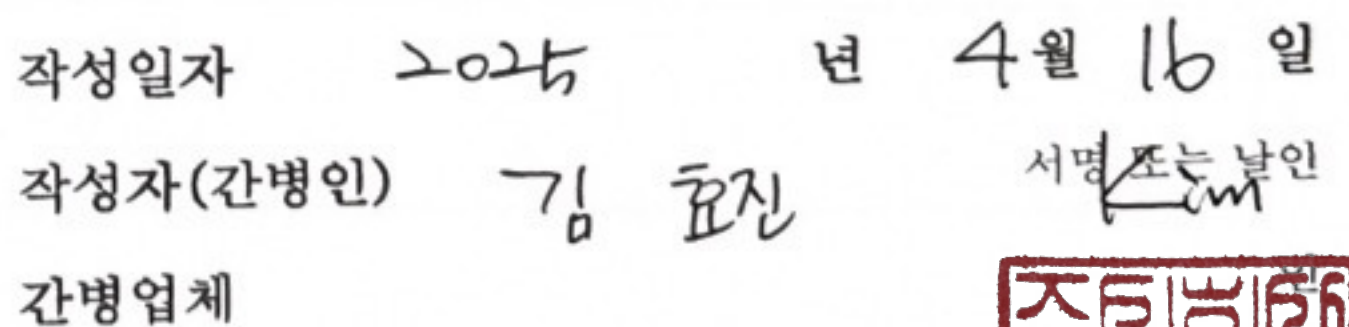 작성일자 2025 년 4월 16 일
작성자(간병인) 김 효진 서명 또는 날인
간병업체 인